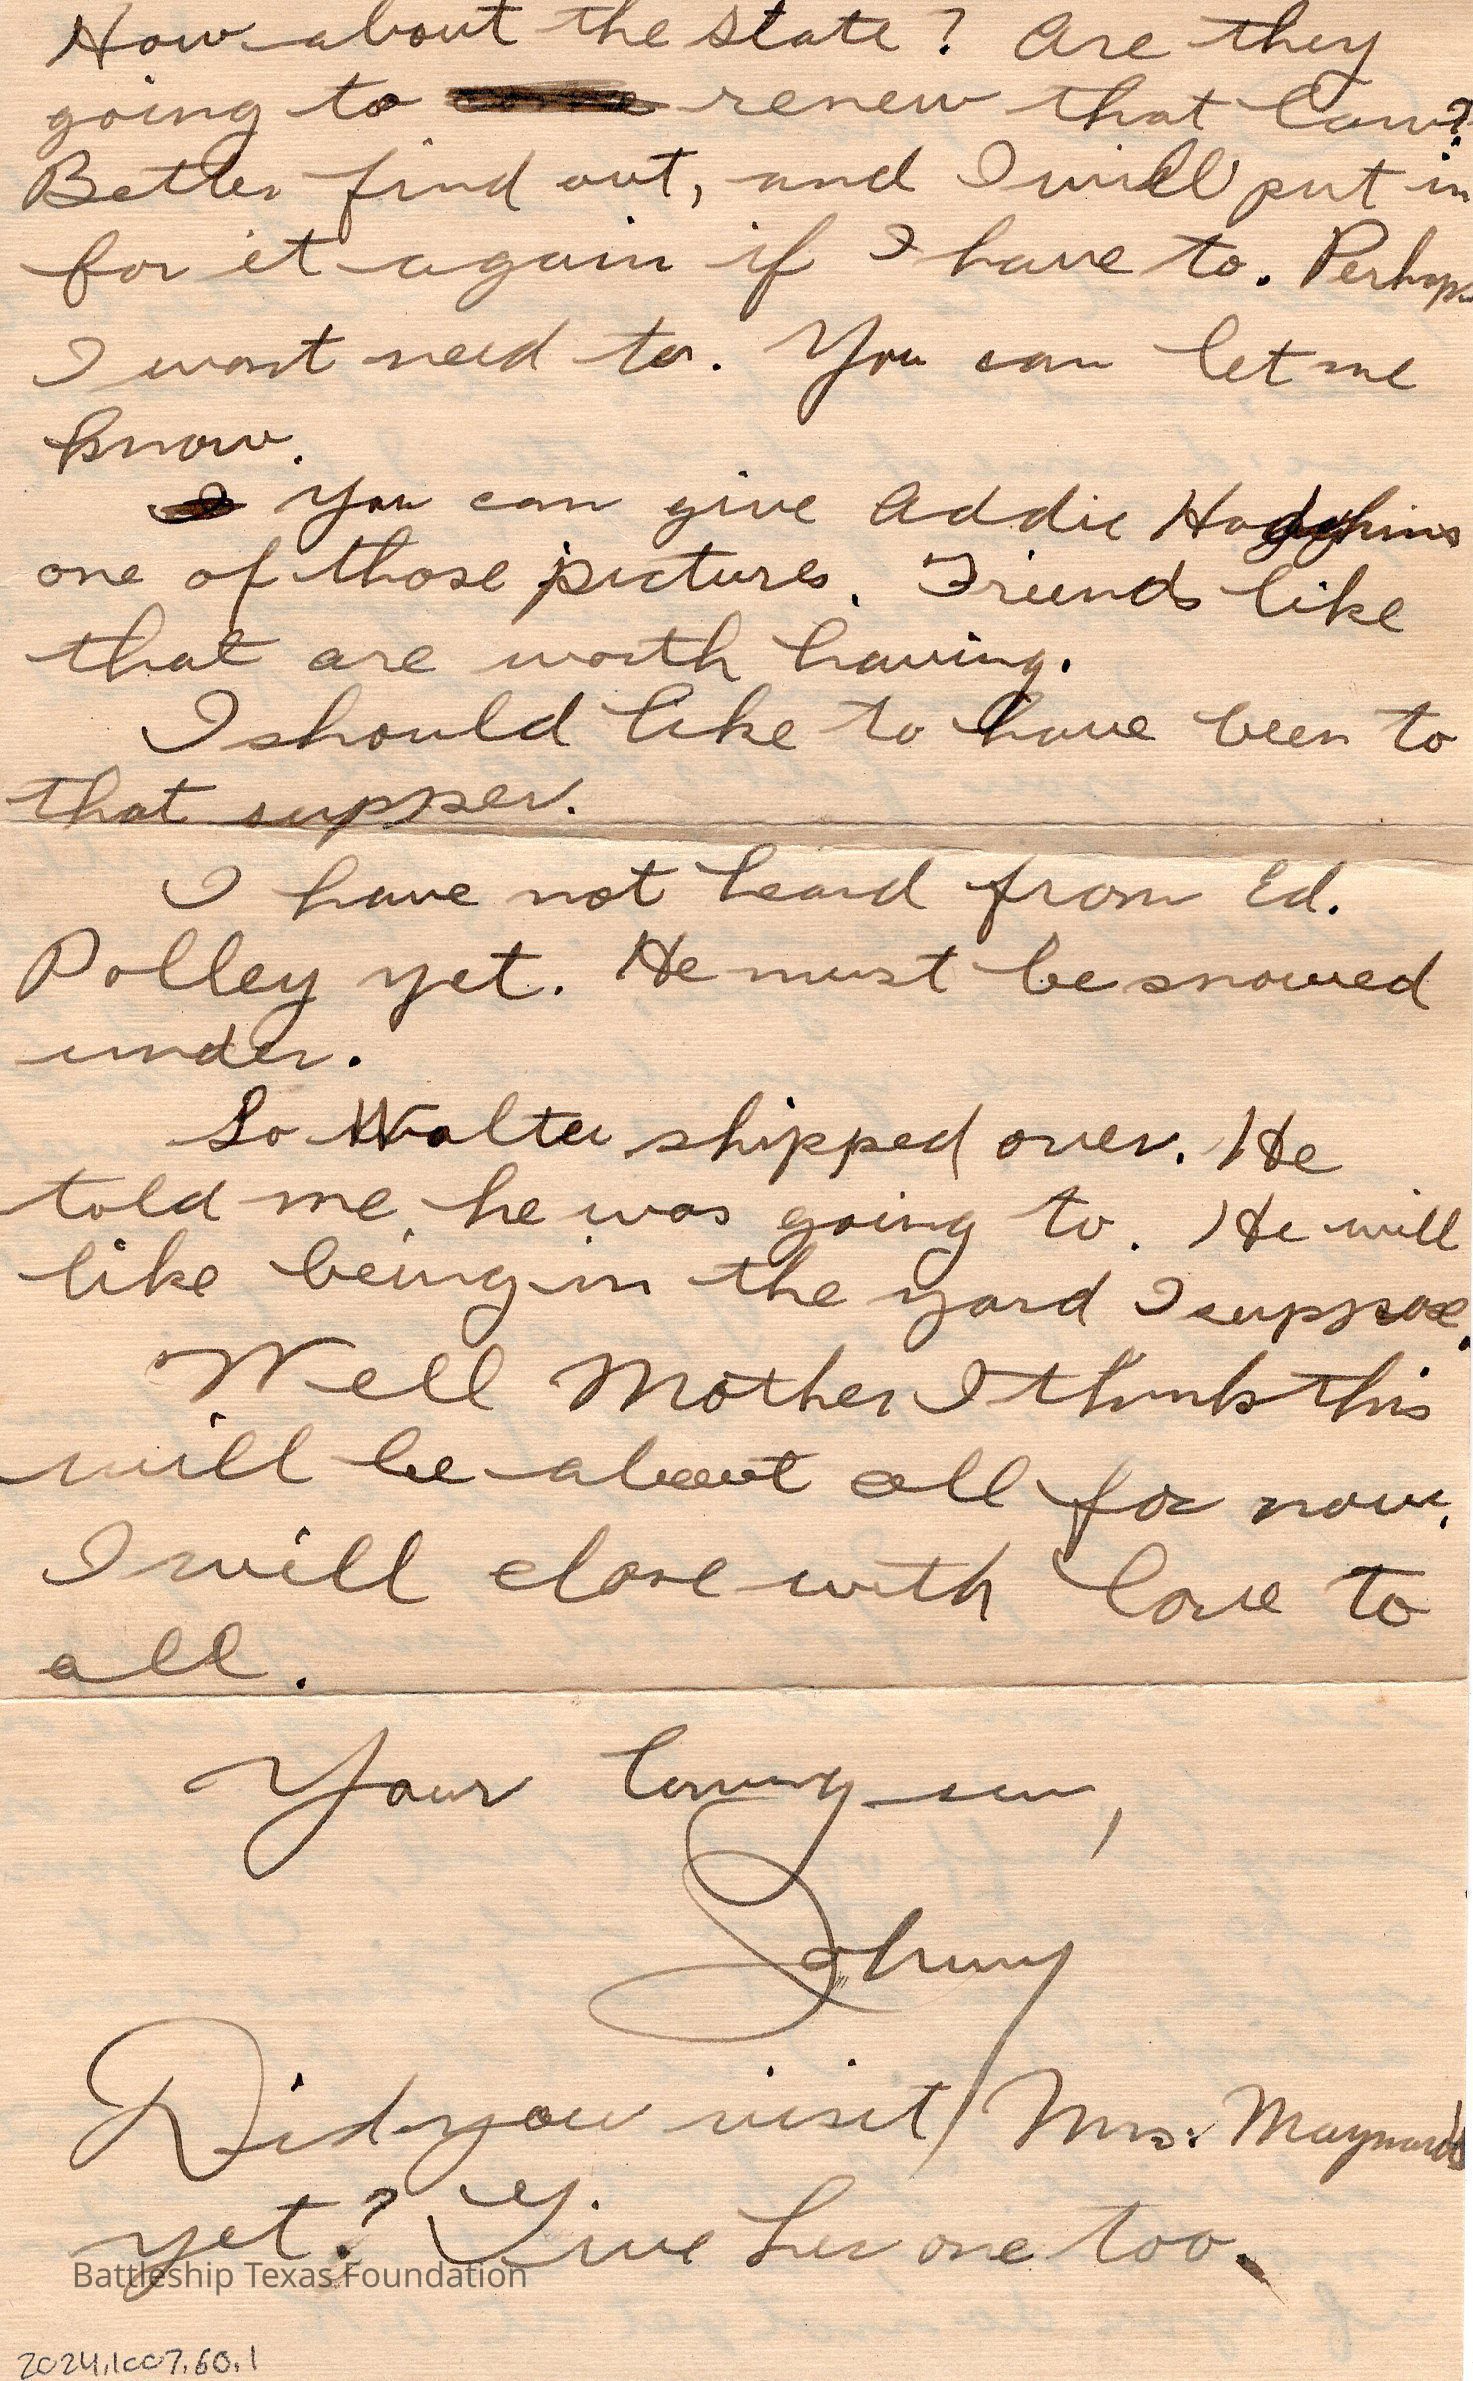 How about the state? Are they
going to renew that law?
Better find out, and I will put in
for it again if I have to. Perhaps
I wont need to. You can let me
know.
You can give Addie Hodgkins
one of those pictures. Friends like
that are worth having.
I should like to have been to
that supper.
I have not heard from Ed.
Polley yet. He must be snowed
under.
So Walter shipped over. He
told me, he was going to. He will
like being in the yard I suppose.
Well Mother I think this
will be about all for now.
I will close with love to
all.
Your loving son,
Johnny
Did you visit Mrs. Maynard
yet? Give her one too.
Battleship Texas Foundation
2024.1007.60.1